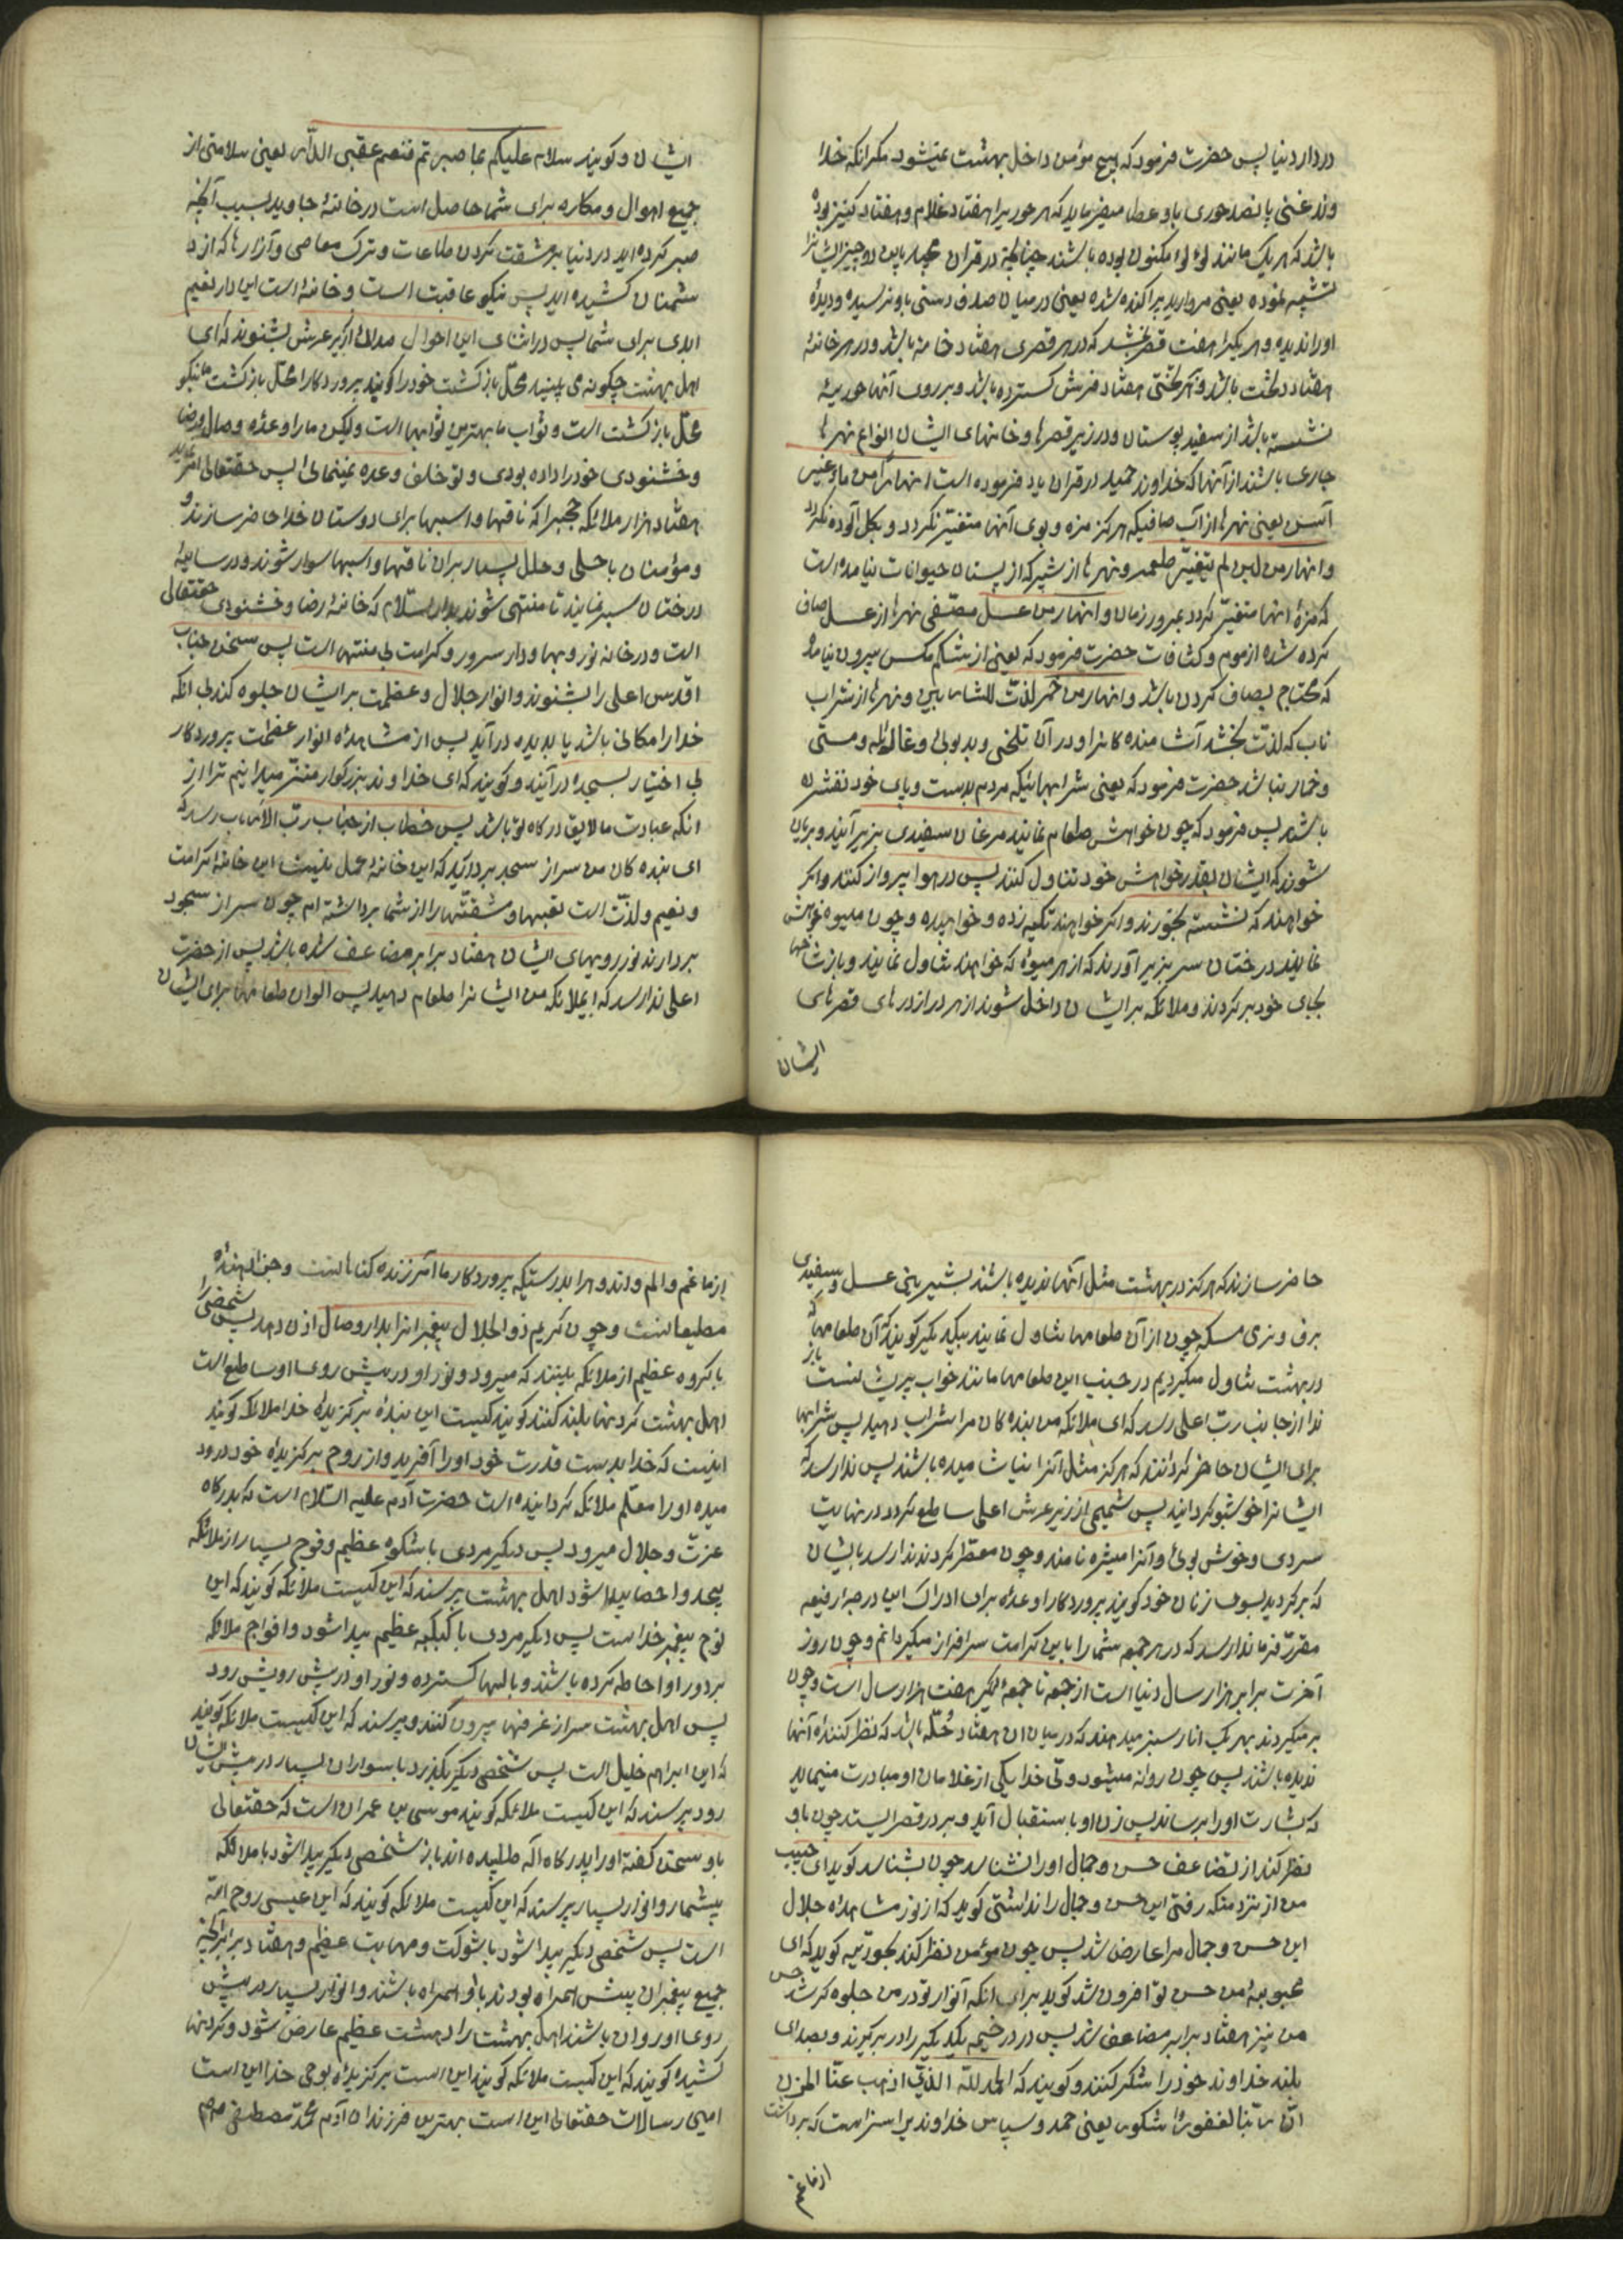 در دار دنیا پس حضرت فرمود که هیچ مؤمن داخل بهشت نمیشود مکر آنکه خدا
وند غنی پانصد حوری باو عطا میفرماید که هر حوریرا هفتاد غلام و هفتاد کنیز بوده
باشد که هر یک مانند لؤلؤ مکنون بوده باشند چنانچه در قران مجید باین دو چیز ایشانرا
تشبیه نموده یعنی مروارید پراکنده شده یعنی در میان صدف دستی باو نرسیده و دیدهٔ
اورا ندیده و هر یکیرا هفت قصر بخشد که در هر قصری هفتاد خانه باشد و در هر خانهٔ
هفتاد تخت باشد و هر تختی هفتاد فرش کسترده باشد و بر روی آنها حوریهٔ
نشسته باشد از سفید پوستان و در زیر قصرها و خانهای ایشان انواع نهرها
جاری باشند از آنها که خداوند حمید در قران یاد فرموده است انهار من ماء غیر
آسن یعنی نهرها از آب صافیکه هرکز مزه و بوی آنها متغیّر نکردد و بکل آلوده نکردد
و انهار من لبن لم یتغیّر طعمه و نهرها از شیر که از پستان حیوانات نیامده است
که مزهٔ انها متغیّر کردد بمرور زمان و انهار من عسل مصفّی نهرها از عسل صاف
کرده شده از موم و کثافات حضرت فرمود که یعنی از شکم مکس بیرون نیامده
که محتاج بصاف کردن باشد و انهار من خمر لذّت للشاربین و نهرها از شراب
ناب که لذّت بخشد آشامنده کانرا و در آن تلخی و بد بوئی و غائله و مستی
و خمار نباشد حضرت فرمود که یعنی شرابهائیکه مردم بدست و پای خود نفشرده
باشند پس فرمود که چون خواهش طعام نمایند مرغان سفیدی بزیر آیند و بریان
شوند که ایشان بقدر خواهش خود تناول کنند پس در هوا پرواز کنند و اکر
خواهند که نشسته بخورند و اکر خواهند تکیه زده و خوابیده و چون میوه خواهش
نمایند درختان سر بزیر آورند که از هر میوهٔ که خواهند تناول نمایند و باز شاخها
بجای خود برکردند و ملائکه بر ایشان داخل شوند از هر در از درهای قصرهای
ایشان
ایشان و کویند سلام علیکم بما صبرتم فنعم عقبی الدّار یعنی سلامتی از
جمیع اهوال و مکاره برای شما حاصل است در خانهٔ جاوید بسبب آنچه
صبر کرده اید در دنیا بر مشقت کردن طاعات و ترک معاصی و آزارها که از د
شمنان کشیده اید پس نیکو عاقبت است و خانهٔ است این دار نعیم
ابدی برای شما پس در اثنای این احوال صدائی از زیر عرش بشنوند که ای
اهل بهشت چکونه می بینید محلّ بازکشت خود را کویند پروردکارا محلّ بازکشت ما نیکو
محلّ بازکشت است و ثواب ما بهترین ثوابها است ولیکن مارا وعدهٔ وصال و رضا
و خشنودی خود را داده بودی و تو خلف وعده نمینمائی پس حقتعالی امر نماید
هفتاد هزار ملائکه حجبرا که ناقها و اسبها برای دوستان خدا حاضر سازند و
و مؤمنان با حلی و حلل بسیار بر ان ناقها و اسبها سوار شوند و در سایهٔ
درختان سیر نمایند تا منتهی شوند بدار السّلام که خانهٔ رضا و خشنودی حقتعالی
است و در خانه نور و بها و دار سرور و کرامت بی منتها است پس سخن جناب
اقدس اعلی را بشنوند و انوار جلال و عظمت بر ایشان جلوه کند بی انکه
خدا را مکانی باشد یا بدیده در آید پس از مشاهدهٔ انوار عظمت پروردکار
بی اختیار بسجده در آیند و کویند که ای خداوند بزرکوار منزّه میدانیم ترا از
انکه عبادت ما لایق درکاه تو باشد پس خطاب از جناب ربّ الارباب رسد که
ای بنده کان من سر از سجده بردارید که این خانهٔ عمل نیست این خانهٔ کرامت
و نعیم و لذّت است تعبها و مشقتها را از شما برداشته ام چون سر از سجود
بردارند نور رویهای ایشان هفتاد برابر مضاعف شده باشد پس از حضرت
اعلی ندا رسد که ایملائکهٔ من ایشانرا طعام دهید پس الوان طعامها برای ایشان
حاضر سازند که هرکز در بهشت مثل آنها ندیده باشند بشیرینی عسل و سفیدی
برف و نرمی مسکه چون از آن طعامها تناول نمایند بیکدیکر کویند که آن طعامها که
در بهشت تناول میکردیم در جنب این طعامها مانند خواب پریشانست باز
ندا از جانب ربّ اعلی رسد که ای ملائکهٔ من بنده کان مرا شراب دهید پس شرابها
برای ایشان حاضر کردانند که هرکز مثل آنرا نیاشامیده باشند پس ندا رسد که
ایشانرا خوشبو کردانید پس شمیمی از زیر عرش اعلی ساطع کردد در نهایت
سردی و خوش بوئی و آنرا مثیره نامند و چون معطّر کردند ندا رسد بایشان
که برکردید بسوی زنان خود کویند پروردکارا وعدهٔ برای ادراک این درجهٔ رفیعه
مقرّر فرما ندا رسد که در هر جمعه شما را باین کرامت سرافراز میکردانم و چون روز
آخرت برابر هزار سال دنیا است از جمعه تا جمعهٔ دیکر هفت هزار سال است و چون
برمیکردند بهر یک انار سبز میدهند که در میان ان هفتاد حُلّه باشد که نظر کنندهٔ آنها
ندیده باشند پس چون روانه میشود ولی خدا یکی از غلامان او مبادرت مینماید
که بشارت اورا برساند پس زن او باستقبال آید و بر در قصر ایستد چون باو
نظر کند از تضاعف حسن و جمال اورا نشناسد چون بشناسد کوید ای حبیب
من از نزد من که رفتی این حسن و جمال را نداشتی کوید که از نور مشاهدهٔ جلال
این حسن و جمال مرا عارض شد پس چون مؤمن نظر کند بحوریّه کوید که ای
محبوبهٔ من حسن تو افزون شد کوید برای انکه انوار تو در من جلوه کر شد حسن
من نیز هفتاد برابر مضاعف شد پس در در خیمه یکدیکر را در بر کیرند و بصدای
بلند خداوند خود را شکر کنند و کویند که الحمد للّه الّذی اذهب عنّا الحزن
انّ ربّنا لغفورٌ شکور یعنی حمد و سپاس خداوندیرا سزاست که برداشت
از ما غم
از ما غم و الم و اندوه را بدرستیکه پروردکار ما آمرزنده کناهانست و جزا دهندهٔ
مطیعانست و چون کریم ذو الجلال پیغمبرانرا بدار وصال اذن دهد پس شخصی را
با کروه عظیم از ملائکه بینند که میرود و نور او در پیش روی او ساطع است
اهل بهشت کردنها بلند کنند کویند کیست این بندهٔ برکزیدهٔ خدا ملائکه کویند
اینست که خدا بدست قدرت خود اورا آفرید و از روح برکزیدهٔ خود در او د
میده اورا معلّم ملائکه کردانیده است حضرت آدم علیه السّلام است که بدرکاه
عزّت و جلال میرود پس دیکر مردی با شکوه عظیم و فوج بسیار از ملائکه
بیحد و احصا پیدا شود اهل بهشت پرسند که این کیست ملائکه کویند که این
نوح پیغمبر خدا است پس دیکر مردی با کبکبه عظیم پیدا شود و افواج ملائکه
بر دور او احاطه کرده باشند و بالیها کسترده و نور او در پیش رویش رود
پس اهل بهشت سر از غرفها بیرون کنند و پرسند که این کیست ملائکه کویند
که این ابراهیم خلیل است پس شخصی دیکر بکذرد با سواران بسیار در پیش ایشان
رود پرسند که این کیست ملائکه کویند موسی بن عمران است که حقتعالی
باو سخن کفته اورا بدرکاه اله طلبیده اند باز شخصی دیکر پیدا شود با ملائکه
بیشمار و انوار بسیار پرسند که این کیست ملائکه کویند که این عیسی روح اللّه
است پس شخصی دیکر پیدا شود با شوکت و مهابت عظیم و هفتاد برابر آنچه
جمیع پیغمبران پیش همراه بودند باو همراه باشند و انوار بسیار در پیش
روی او روان باشند اهل بهشت را دهشت عظیم عارض شود و کردنها
کشیده کویند که این کیست ملائکه کویند این است برکزیدهٔ بوحی خدا این است
امین رسالات حقتعالی این است بهترین فرزندان آدم محمّد مصطفی صلعم